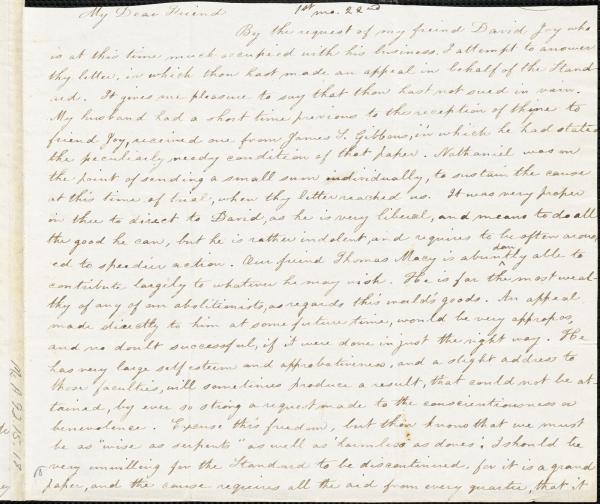 My Dear Friend 1st mo. 22nd
By the request of my friend David Joy who
is at this time much occupied with his business, I attempt to answer
thy letter, in which thou hast made an appeal in behalf of the Stand-
ard. It gives me pleasure to say that thou hast not sued in vain.
My husband had a short time previous to the reception of thine to
friend Joy, received one from James S. Gibbons, in which he had stated
the peculiarly needy condition of that paper. Nathaniel was on
the point of sending a small sum individually, to sustain the cause
at this time of trial, when thy letter reached us. It was very proper
in thee to direct to David, as he is very liberal, and means to do all
the good he can, but he is rather indolent, and requires to be often arous-
ed to speedier action. Our friend Thomas Macy is abundantly able to
contribute largely to whatever he may wish. He is far the most weal-
thy of any of our abolitionists, as regards this world's goods. An appeal
made directly to him at some future time, would be very appropos,
and no doubt successful, if it were done in just the right way. He
has very large self esteem and approbativeness, and a slight address to
those faculties, will sometimes produce a result, that could not be at-
tained, by ever so strong a request made to the conscientiousness or
benevolence. Excuse this freedom, but thou knows that we must
be as "wise as serpents" as well as "harmless as doves". I should be
very unwilling for the Standard to be discontinued, for it is a grand
paper, and the cause requires all the aid from every quarter, that it